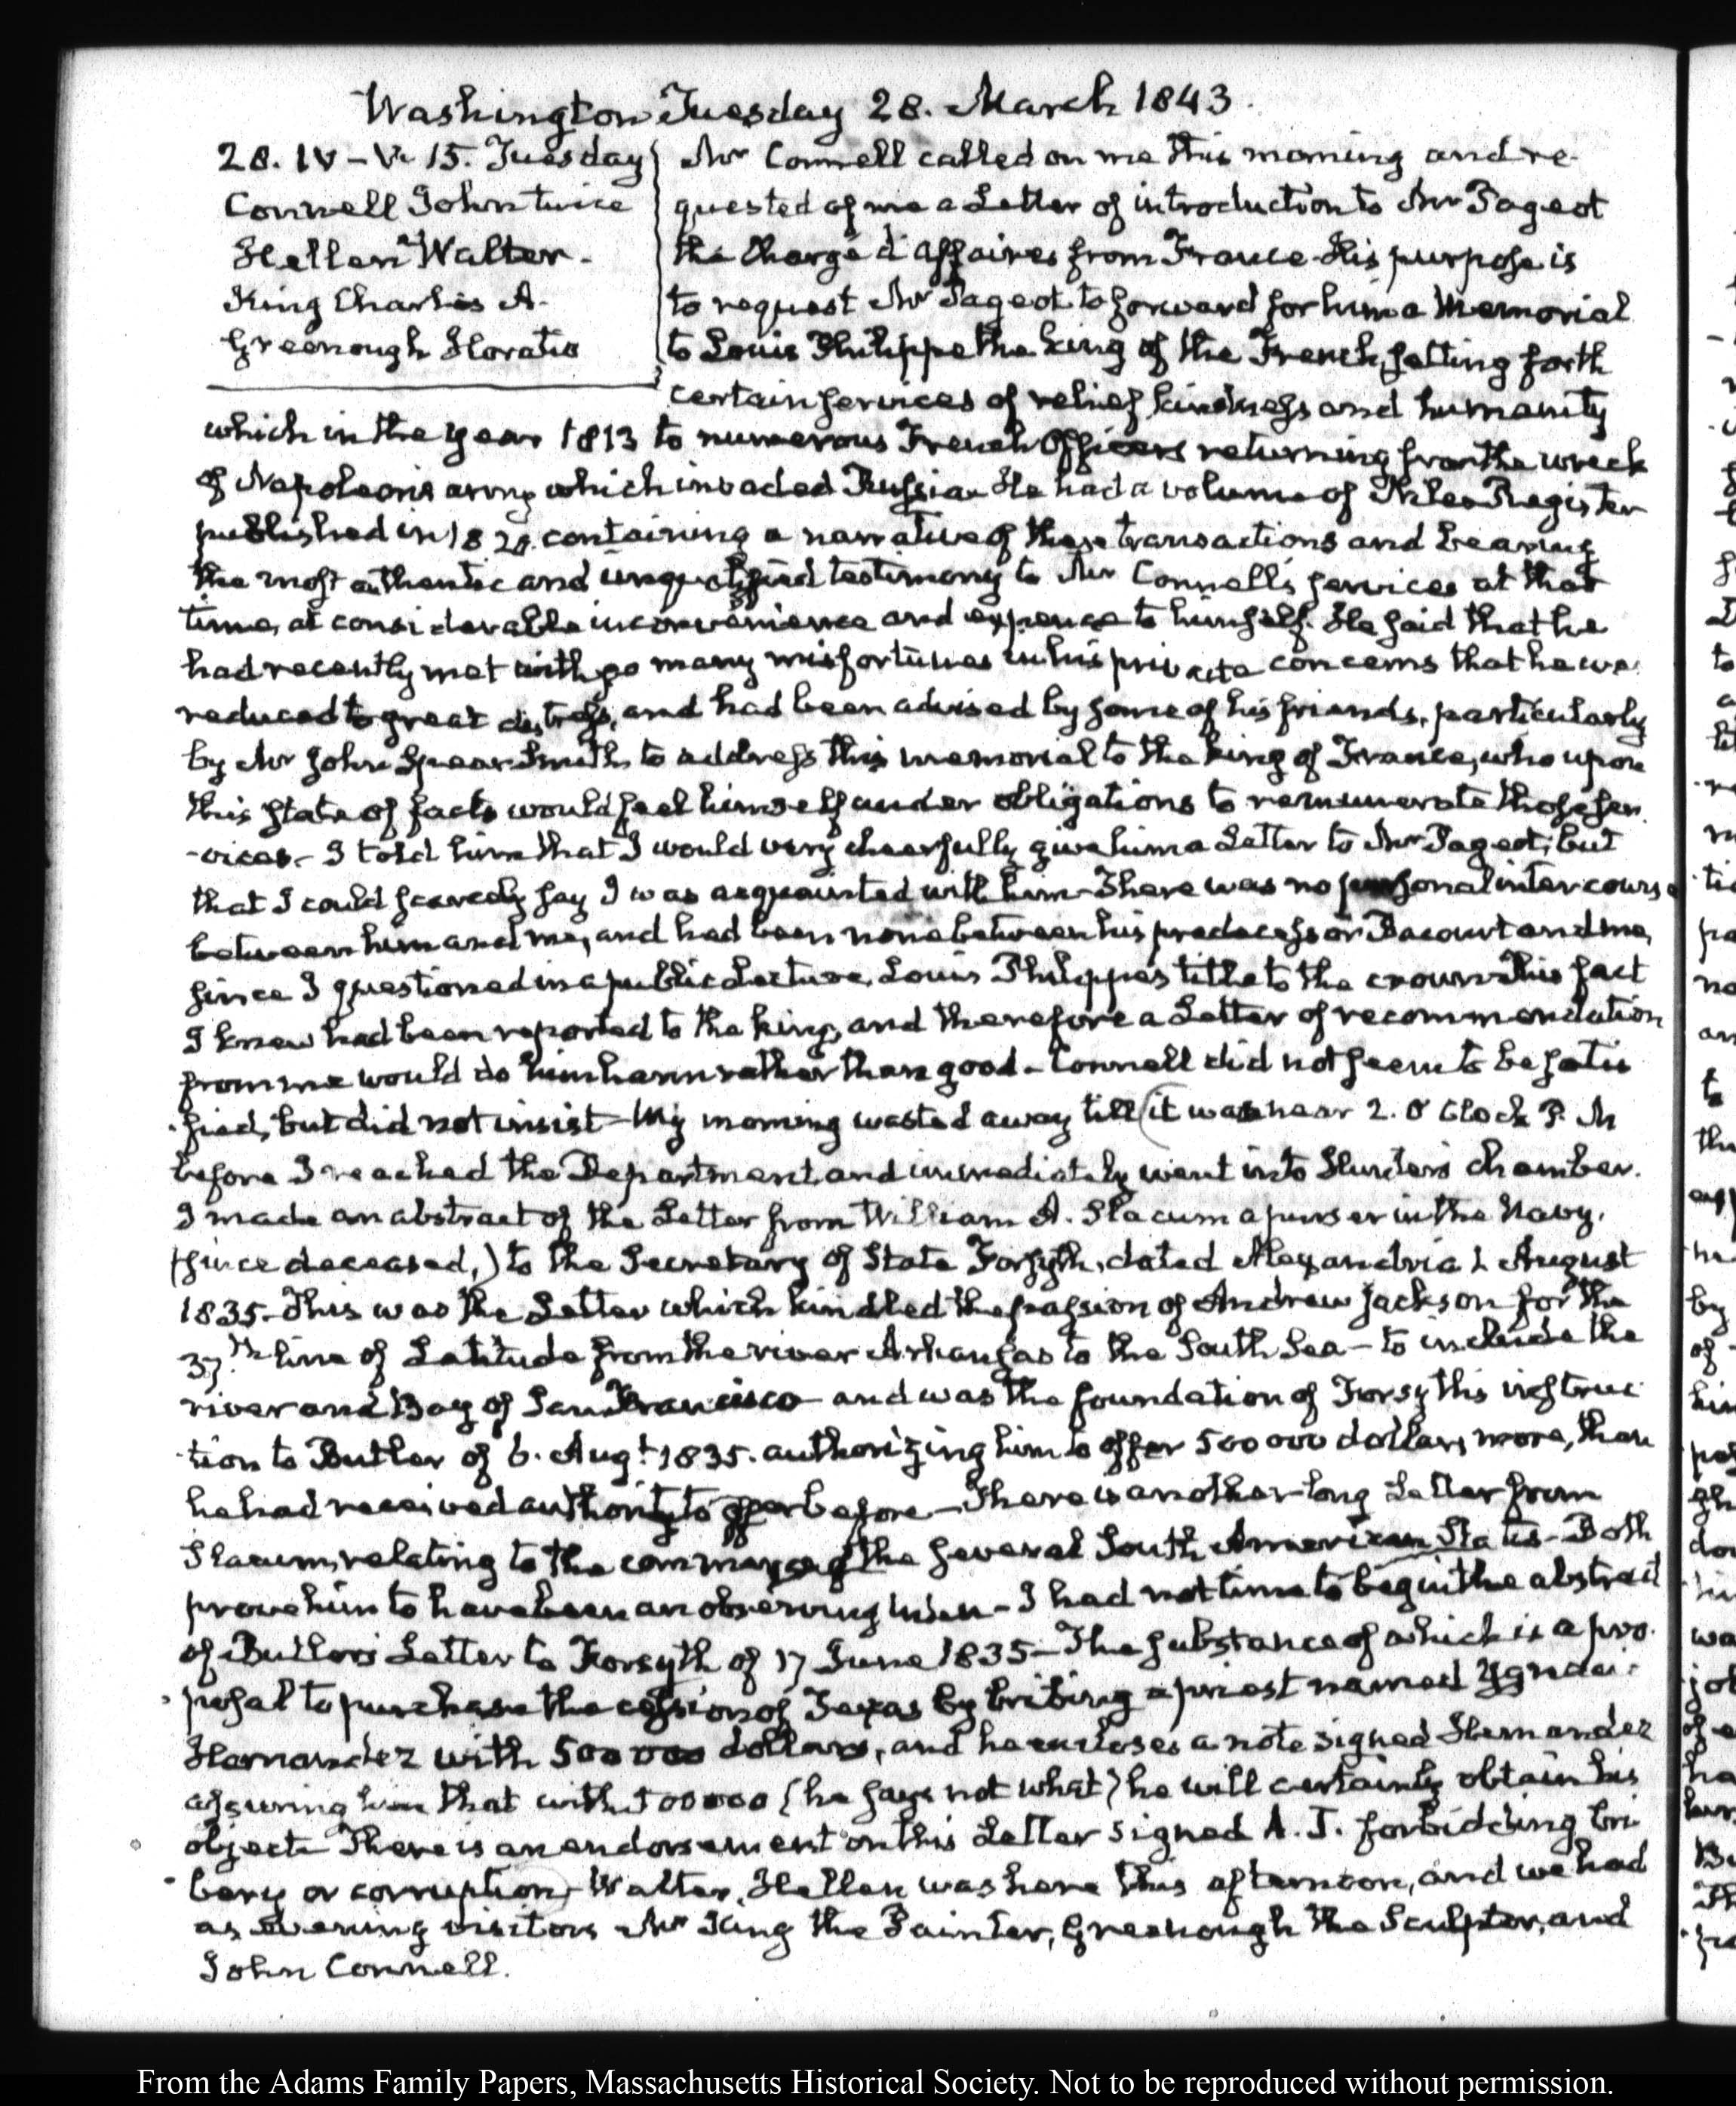 Washington Tuesday 28. March 1843.
28. IV – V. 15. Tuesday
Connell John twice
Hellen Walter.
King Charles A.
Greenough Horatio
Mr Connell called on me this morning and re-
quested of me a Letter of introduction to Mr Pageot
the Chargé d'affaires from France. His purpose is
to request Mr Pageot to forward for him a Memorial
to Louis Philippe the king of the French, setting forth
certain services of relief, kindness and humanity
which in the year 1813 to numerous French Officers returning from the wreck
of Napoleon's army which invaded Russia. He had a volume of Niles Register
published in 1820. containing a narrative of these transactions and bearing
the most authentic and unqualified testimony to Mr Connell's services at that
time, at considerable inconvenience and expence to himself. He said that he
had recently met with so many misfortunes in his private concerns that he wa
reduced to great distress, and had been advised by some of his friends, particularly
by Mr John Spear Smith, to address this memorial to the king of France, who upon
this state of facts would feel himself under obligations to remunerate those ser
-vices – I told him that I would very cheerfully give him a Letter to Mr Pageot; but
that I could scarcely say I was acquainted with him – There was no personal intercourse
between him and me, and had been none between his predecessor Bacourt and me,
since I questioned in a public Lecture, Louis Philippe's title to the crown. This fact
I knew had been reported to the king, and therefore a Letter of recommendation
from me would do him harm rather than good – Connell did not seem to be satis
-fied, but did not insist – My morning wasted away till (it was near 2. O'Clock P. M
before I reached the Department, and immediately went into Hunter's chamber.
I made an abstract of the Letter from William A. Slacum a purser in the Navy,
(since deceased,) to the Secretary of State Forsyth, dated Alexandria 1 August
1835 – This was the Letter which kindled the passion of Andrew Jackson for the
37th line of Latitude from the river Arkansas to the South Sea – to include the
river and Bay of San Francisco – and was the foundation of Forsyth's instruc
-tion to Butler of 6. Augt 1835. authorizing him to offer 500 000 dollars more, than
he had received authority to offer before – There is another long Letter from
Slacum, relating to the commerce of the several South American States – Both
prove him to have been an observing man – I had not time to begin the abstract
of Butler's Letter to Forsyth of 17 June 1835 – The substance of which is a pro-
-posal to purchase the cession of Texas by bribing a priest named
Hernandez with 500 000 dollars, and he encloses a note signed Hernandez
assuring him that with 500 000 (he says not what) he will certainly obtain his
object. There is an endorsement on this Letter signed A. J. forbidding bri-
-bery or corruption) – Walter Hellen was here this afternoon, and we had
as evening visitors Mr King the Painter, Greenough the Sculptor, and
John Connell.
From the Adams Family Papers, Massachusetts Historical Society. Not to be reproduced without permission.